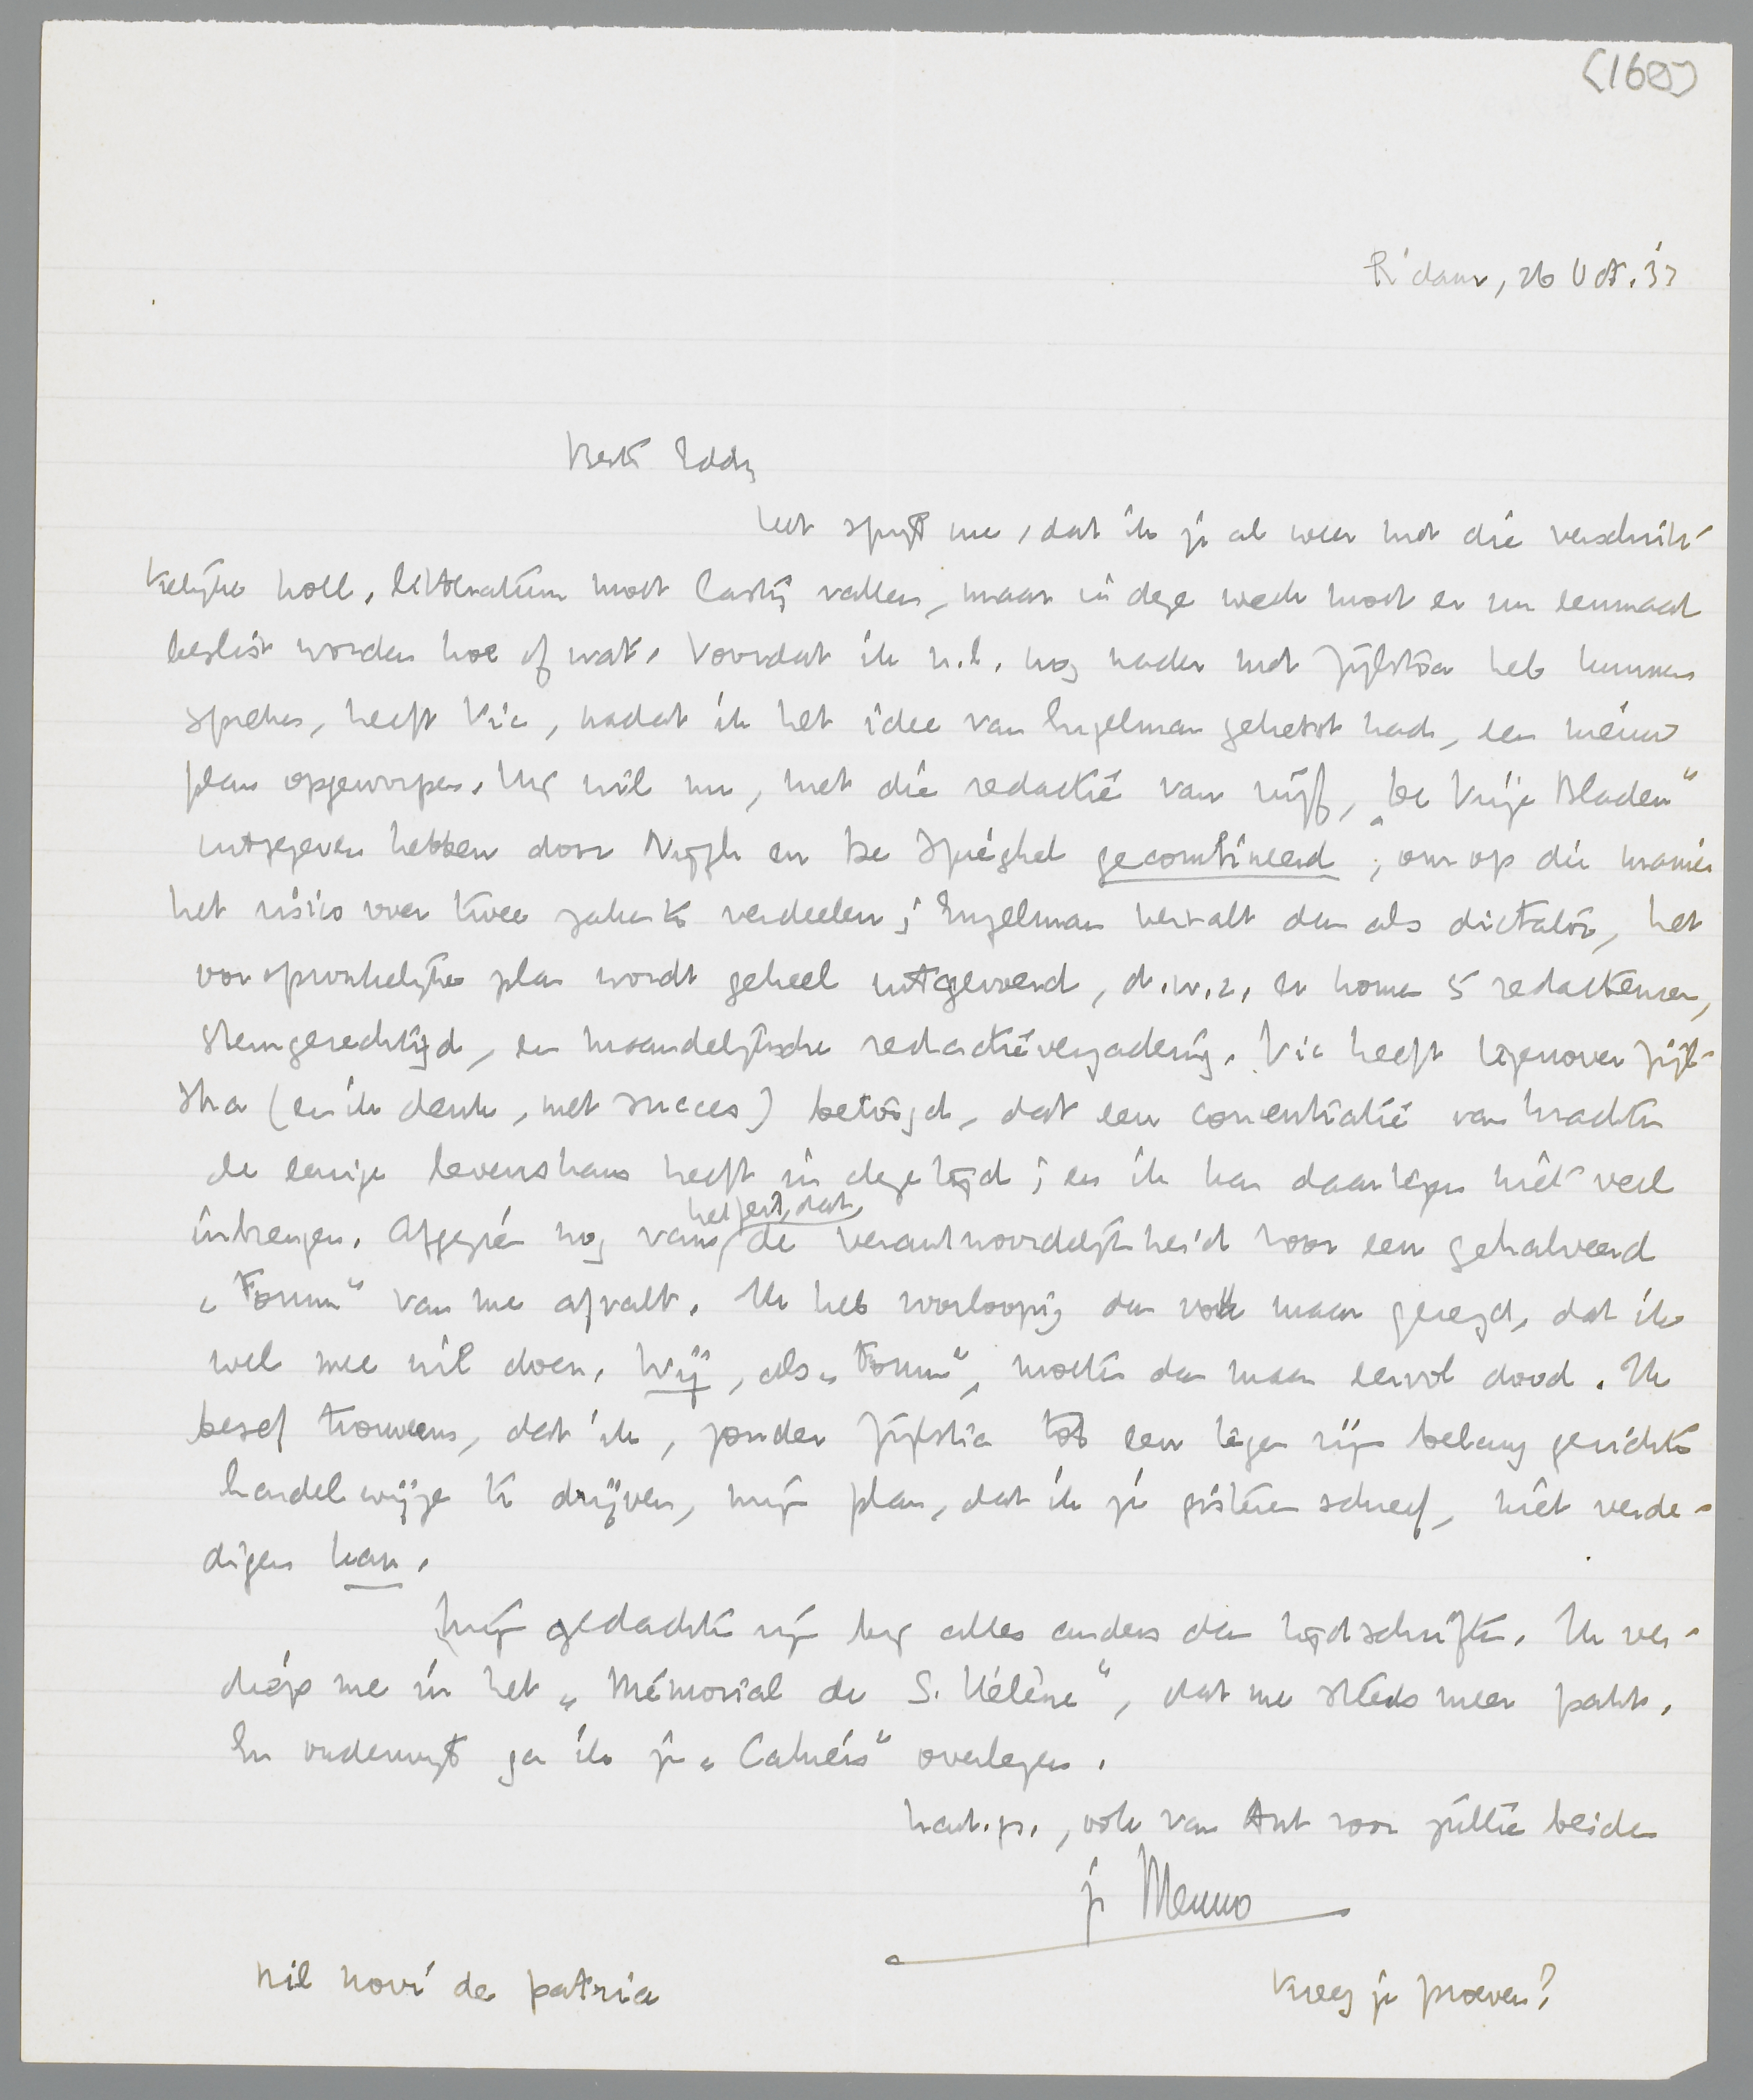 (160)
R'dam, 26 Oct. '33
Beste Eddy,
Het spijt me, dat ik je al weer met die verschrik-
kelijke holl. litteratuur moet lastig vallen, maar in deze week moet er nu eenmaal
beslist worden hoe of wat. Voordat ik n.l. nog nader met Zijlstra heb kunnen
spreken, heeft Vic, nadat ik het idee van Engelman gehetst had, een nieuw
plan opgeworpen. Hij wil nu, met die redactie van vijf, „De Vrije Bladen"
uitgegeven hebben door Nijgh en De Spieghel gecombineerd, om op die manier
het risico over twee zaken te verdeelen; Engelman vervalt dan als dictator, het
oorspronkelijke plan wordt geheel uitgevoerd, d.w.z. er komen 5 redacteuren,
stemgerechtigd, en maandelijksche redactievergadering. Vic heeft tegenover Zijl-
stra (en ik denk, met succes) betoogd, dat een concentratie van krachten
de eenige levenskans heeft in deze tijd; en ik kan daartegen niet veel
inbrengen. Afgezien nog van het feit, dat de verantwoordelijkheid voor een gehalveerd
„Forum" van me afvalt. Ik heb voorloopig dan ook maar gezegd, dat ik
wel mee wil doen. Wij, als „Forum", moeten dan maar eervol dood. Ik
besef trouwens, dat ik, zonder Zijlstra tot een tegen zijn belang gerichte
handelwijze te drijven, mijn plan, dat ik je gisteren schreef, niet verde-
digen kan.
Mijn gedachten zijn bij alles anders dan tijdschriften. Ik ver-
diep me in het „Mémorial de S. Hélène", dat me steeds meer pakt.
En onderwijl ga ik je „Cahiers" overlezen.
hart. gr., ook van Ant voor jullie beiden
je Menno
Nil novi de patria
Kreeg je proeven?